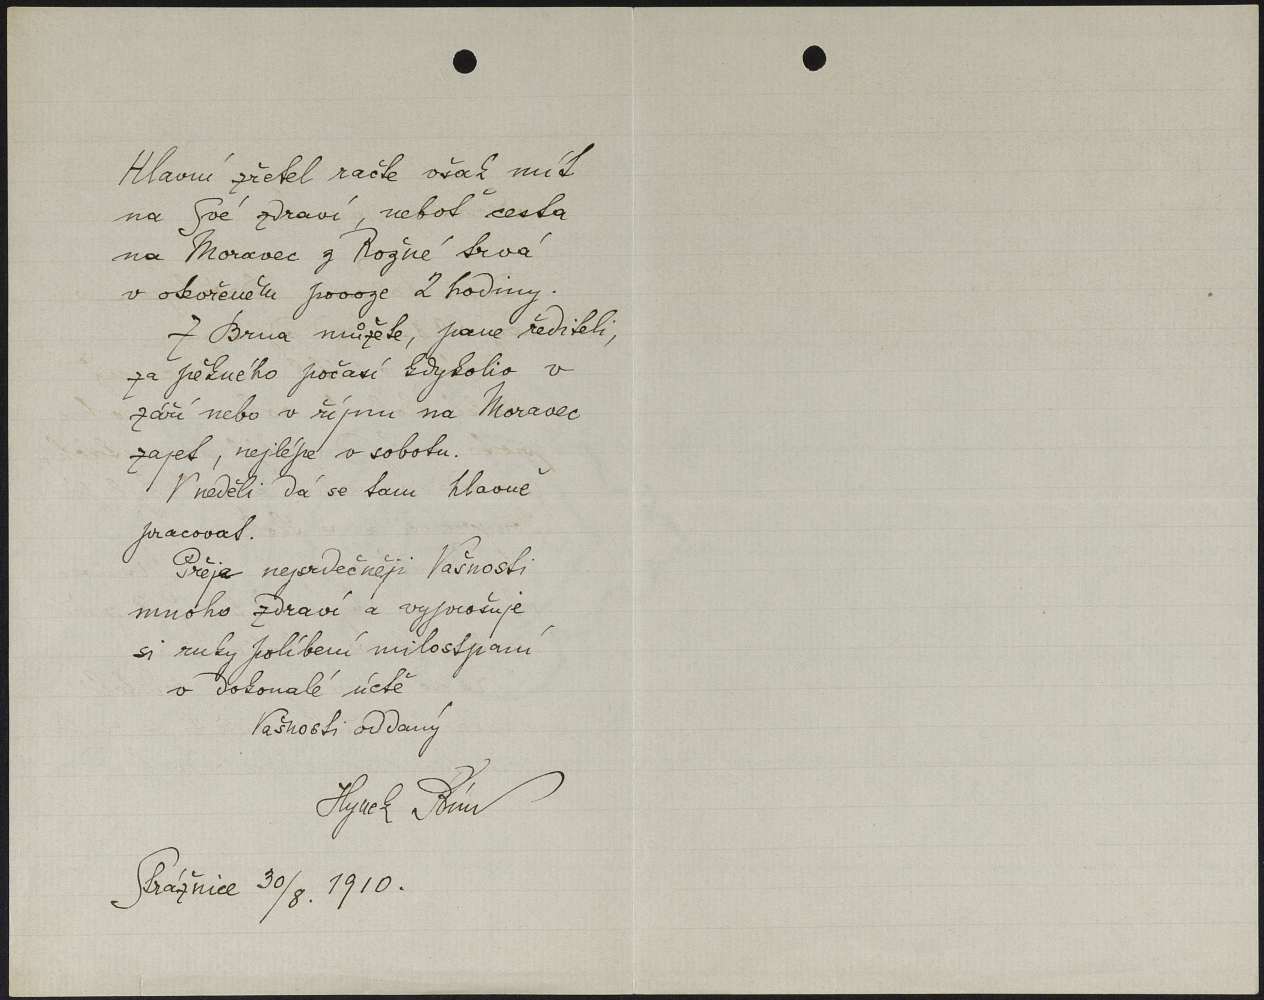 Hlavní zřetel račte však mít
na Své zdraví, neboť cesta
na Moravec z Rožné trvá
v otevřeném povoze 2 hodiny.
Z Brna můžete, pane řediteli,
za pěkného počasí kdykoliv v
září nebo v říjnu na Moravec
zajet, nejlépe v sobotu.
V neděli dá se tam hlavně
pracovat.
Přeje nejsrdečněji Vašnosti
mnoho zdraví a vyprošuje
si ruky políbení milostpaní
v dokonalé úctě
Vašnosti oddaný
Hynek Bím
Strážnice 30/8. 1910.